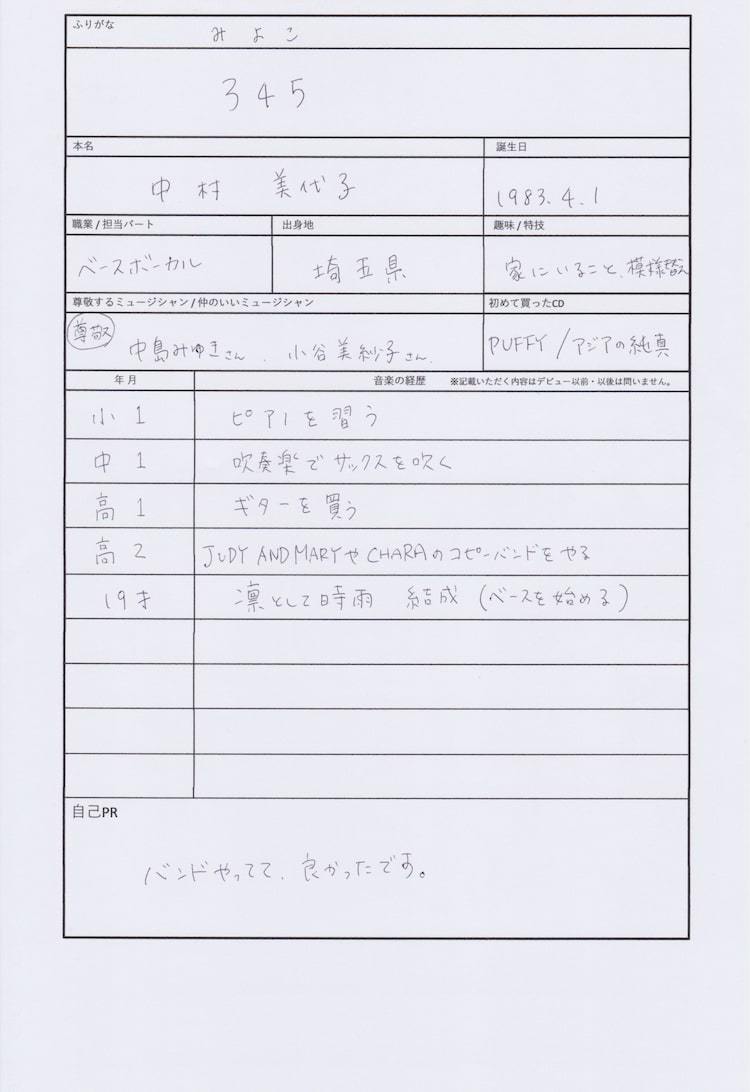 ふりがな
みよこ
345
本名
誕生日
中村 美代子
1983.4.1
職業/担当パート
出身地
趣味/特技
ベースボーカル
埼玉県
家にいること、模様替え
尊敬するミュージシャン/仲のいいミュージシャン
初めて買ったCD
尊敬
中島みゆきさん、小谷美紗子さん.
PUFFY/アジアの純真
年月
音楽の経歴 ※記載いただく内容はデビュー以前・以後は問いません。
小1 ピアノを習う
中1 吹奏楽でサックスを吹く
高1 ギターを買う
高2 JUDY AND MARYやCHARAのコピーバンドをやる
19才 凛として時雨 結成(ベースを始める)
自己PR
バンドやってて、良かったです。